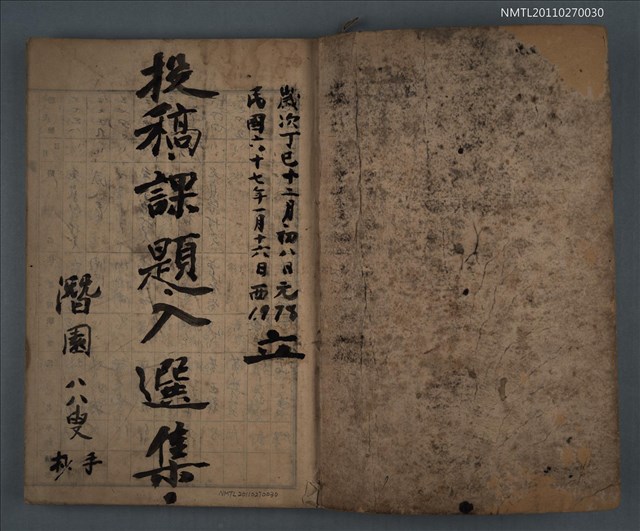 NMTL20110270030
歲次丁巳十二月初八日元
民國六十七年一月十六日西1978
立
投稿課題入選集
潛園
八八叟
手
NMTL20110270030